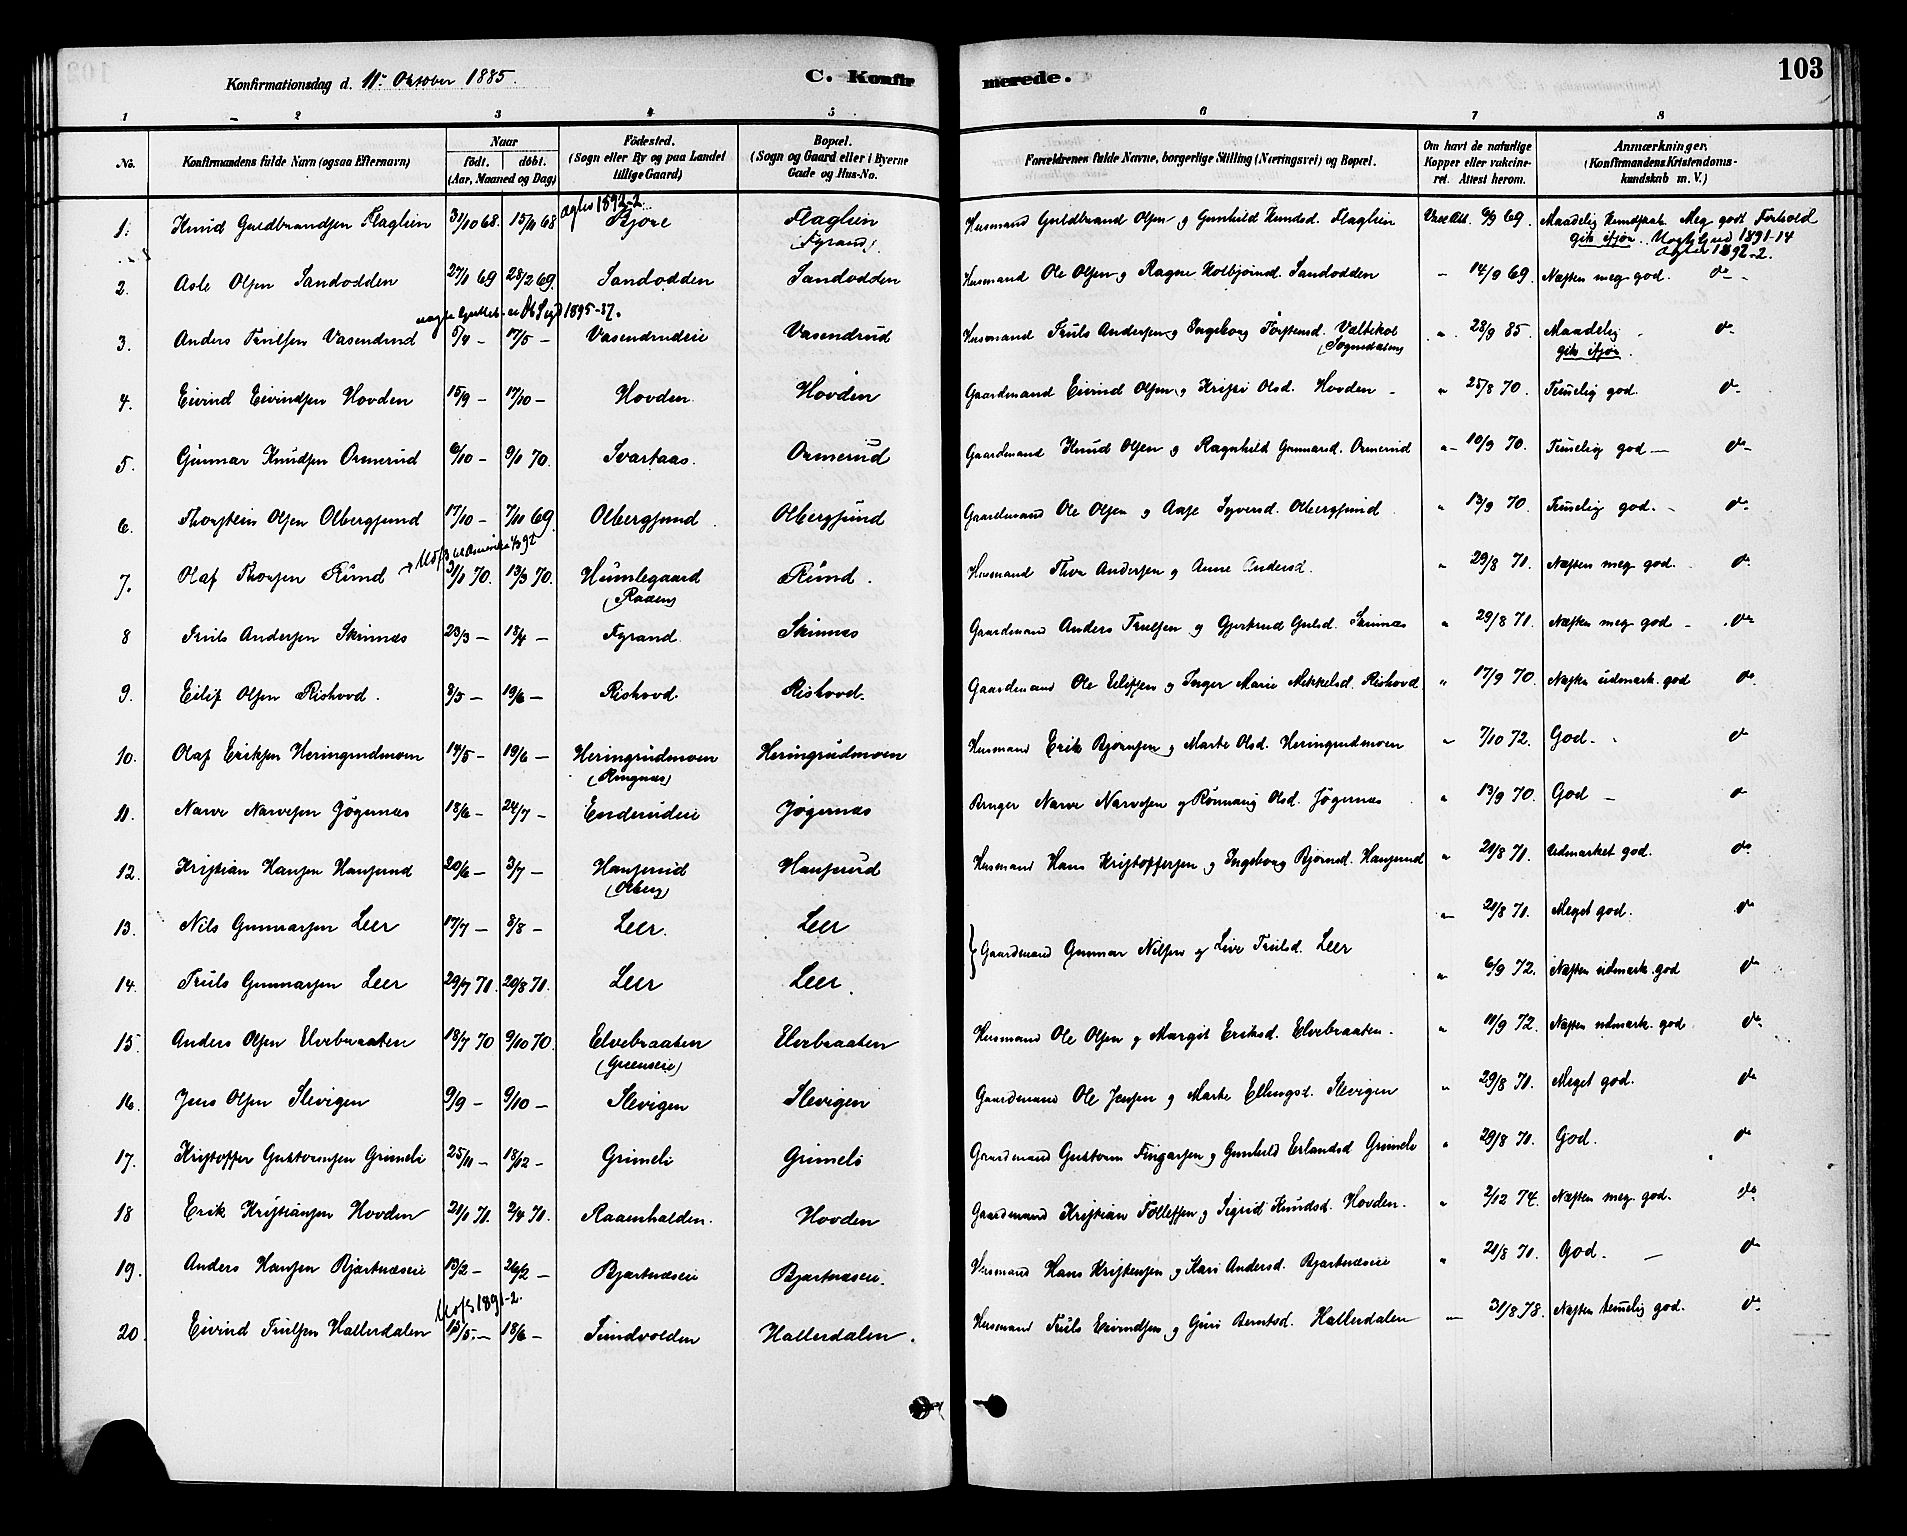 103
Konfirmationsdag d. 11. Oktober 1885.
C. Konfirmerede.
1 2 3 4 5 6 7 8
No.
Konfirmandens fulde Navn (ogsaa Efternavn)
Naar født. døbt. (Aar, Maaned og Dag)
Fødested. (Sogn eller By og paa Landet tillige Gaard)
Bopæl. (Sogn og Gaard eller i Byerne Gade og Hus-No.
Forældrenes fulde Navne, borgerlige Stilling (Næringsvei) og Bopæl.
Om havt de naturlige Kopper eller vakcineret. Attest herom.
Anmærkninger. (Konfirmandens Kristendomskundskab m. V.)
agtes 1892-2.
1. Knud Guldbrandsen Flaglien 31/10 68. 15/11 68 Bjore Flaglien (Fyrand) Husmand Guldbrand Olsen og Gunhild Knudsd. Flaglien Vacc. Att. 6/9 69. Maadelig Kundskab. Meg godt Forhold
gik ifjor. 1891-14
1892-2.
2. Asle Olsen Sandodden 27/1 69 28/2 69. Sandodden Sandodden Husmand Ole Olsen og Ragne Kolbjørnsd. Sandodden - 14/9 69. Næsten meg god. do
1895-37.
3. Anders Trulsen Vasendrud 5/4 - 17/5 - Vasendrudeie Vasendrud Husmand Truls Andersen og Ingeborg Torstensd. Væltekol (Sognedalen) " 28/9 85. Maadelig do
gik ifjor.
4. Eivind Eivindsen Hovden 15/9 - 17/10 - Hovden Hovden Gaardmand Eivind Olsen og Kristi Olsd. Hovden - " 25/8 70. Temelig god. do
5. Gunnar Knudsen Ormerud 6/10 - 9/1 70. Svartaas. Ormerud Gaardmand Knud Olsen og Ragnhild Gunnarsd. Ormerud " 10/9 70. Temelig god - do
6. Thorstein Olsen Olbergsund 17/10 - 7/11 69. Olbergsund Olbergsund Gaardmand Ole Olsen og Aase Syversd. Olbergsund " 13/9 70. Temelig god. - do
7. Olaf Thorsen Rund 3/1 70. 13/3 70. Humlegaard (Raaen) Rund. Husmand Thor Andersen og Anne Andersd. " 29/8 71. Næsten meg god. do
8 Truls Andersen Skinnæs 23/3 - 18/4 - Fyrand. Skinnæs Gaardmand Anders Trulsen og Gjertrud Gulsd. Skinnæs " 29/8 71. Næsten meg god - do
9. Eilif Olsen Rishovd. 8/5 - 19/6 - Rishovd. Rishovd. Gaardmand Ole Eilifsen og Inger Marie Mikkelsd. Rishovd " 17/9 70. Næsten udmærk. god do
10. Olaf Eriksen Heringrudmoen 14/5 - 19/6 - Heringrudmoen (Ringnæs) Heringrudmoen Husmand Erik Bjørnsen og Marte Olsd. Heringrudmoen " 7/10 72. God. do
11. Narve Narvesen Jøgernæs 18/6 - 24/7 - Enderudeie Jøgernæs Bruger Narve Narvesen og Rønnaug Olsd. Jøgernæs " 13/9 70. God - do
12. Kristian Hansen Hanserud 20/6 - 3/7 - Hanserud (Olberg) Hanserud Husmand Hans Kristoffersen og Ingeborg Bjørnsd. Hanserud " 21/8 71. Udmærket god. do
13. Nils Gunnarsen Leer 17/7 - 8/8 - Leer. Leer " 21/8 71. Meget god. do
} Gaardmand Gunnar Nilsen og Live Trulsd. Leer
14. Truls Gunnarsen Leer 29/7 70. 20/8 70. Leer Leer. " 6/9 72. Næsten udmærk. god do
15. Anders Olsen Elvebraaten 18/7 70 9/10 70. Elvebraaten (Greenseie) Elvebraaten Husmand Ole Olsen og Margit Eriksd. Elvebraaten. " 11/9 72. Næsten udmærk. god do
16. Jens Olsen Slevigen 9/9 - 9/10 - Slevigen Slevigen Gaardmand Ole Jensen og Marte Ellingsd. Slevigen " 29/8 71. Meget god. do
17. Kristoffer Gustavsen Grimeli 25/11 - 18/12 - Grimeli Grimeli Gaardmand Gustav Fingarsen og Gunhild Erlandsd Grimeli " 29/8 71. God. do
18 Erik Kristiansen Hovden 21/1 71. 2/4 71. Raaenhalden. Hovden Gaardmand Kristian Tollefsen og Sigrid Knudsd. Hovden. " 2/12 74. Næsten meg. god. do
19. Anders Hansen Bjertnæseie 13/2 - 26/2 - Bjertnæseie Bjertnæseie. Husmand Hans Kristensen og Kari Andersd. Bjertnæseie " 21/8 71. God. - do
1891-2.
20. Eivind Trulsen Hallerdalen 15/5. - 18/6 - Sundvolden Hallerdalen. Husmand Truls Eivindsen og Guri Berntsd. Hallerdalen " 31/8 78. Næsten temelig god. do